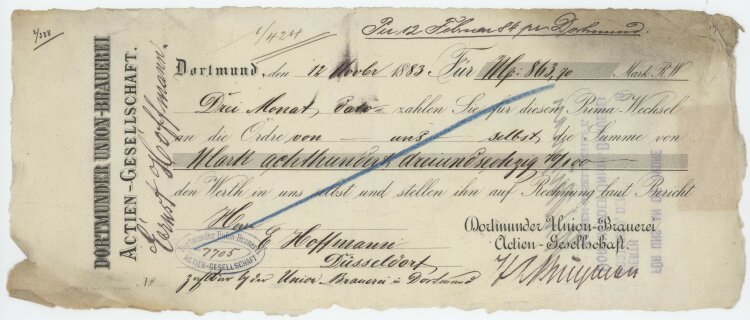 1/338
1/424
Per 12 Februar 84 pr Dortmund.
DORTMUNDER UNION-BRAUEREI
ACTIEN-GESELLSCHAFT.
Ernst Hoffmann.
Dortmund, den 12 Novbr 1883 Für Mk: 863,70 Mark R.W
Drei Monat, dato zahlen Sie für diesen Prima-Wechsel
an die Ordre von uns selbst, die Summe von
Mark achthundert dreiundsechzig 70/100
den Werth in uns selbst und stellen ihn auf Rechnung laut Bericht
Herrn
E. Hoffmann
Düsseldorf
Dortmunder Union-Brauerei
Actien-Gesellschaft.
Dortmunder Union-Brauerei
7705
ACTIEN-GESELLSCHAFT
No
zahlbar bei der Union-Brauerei in Dortmund